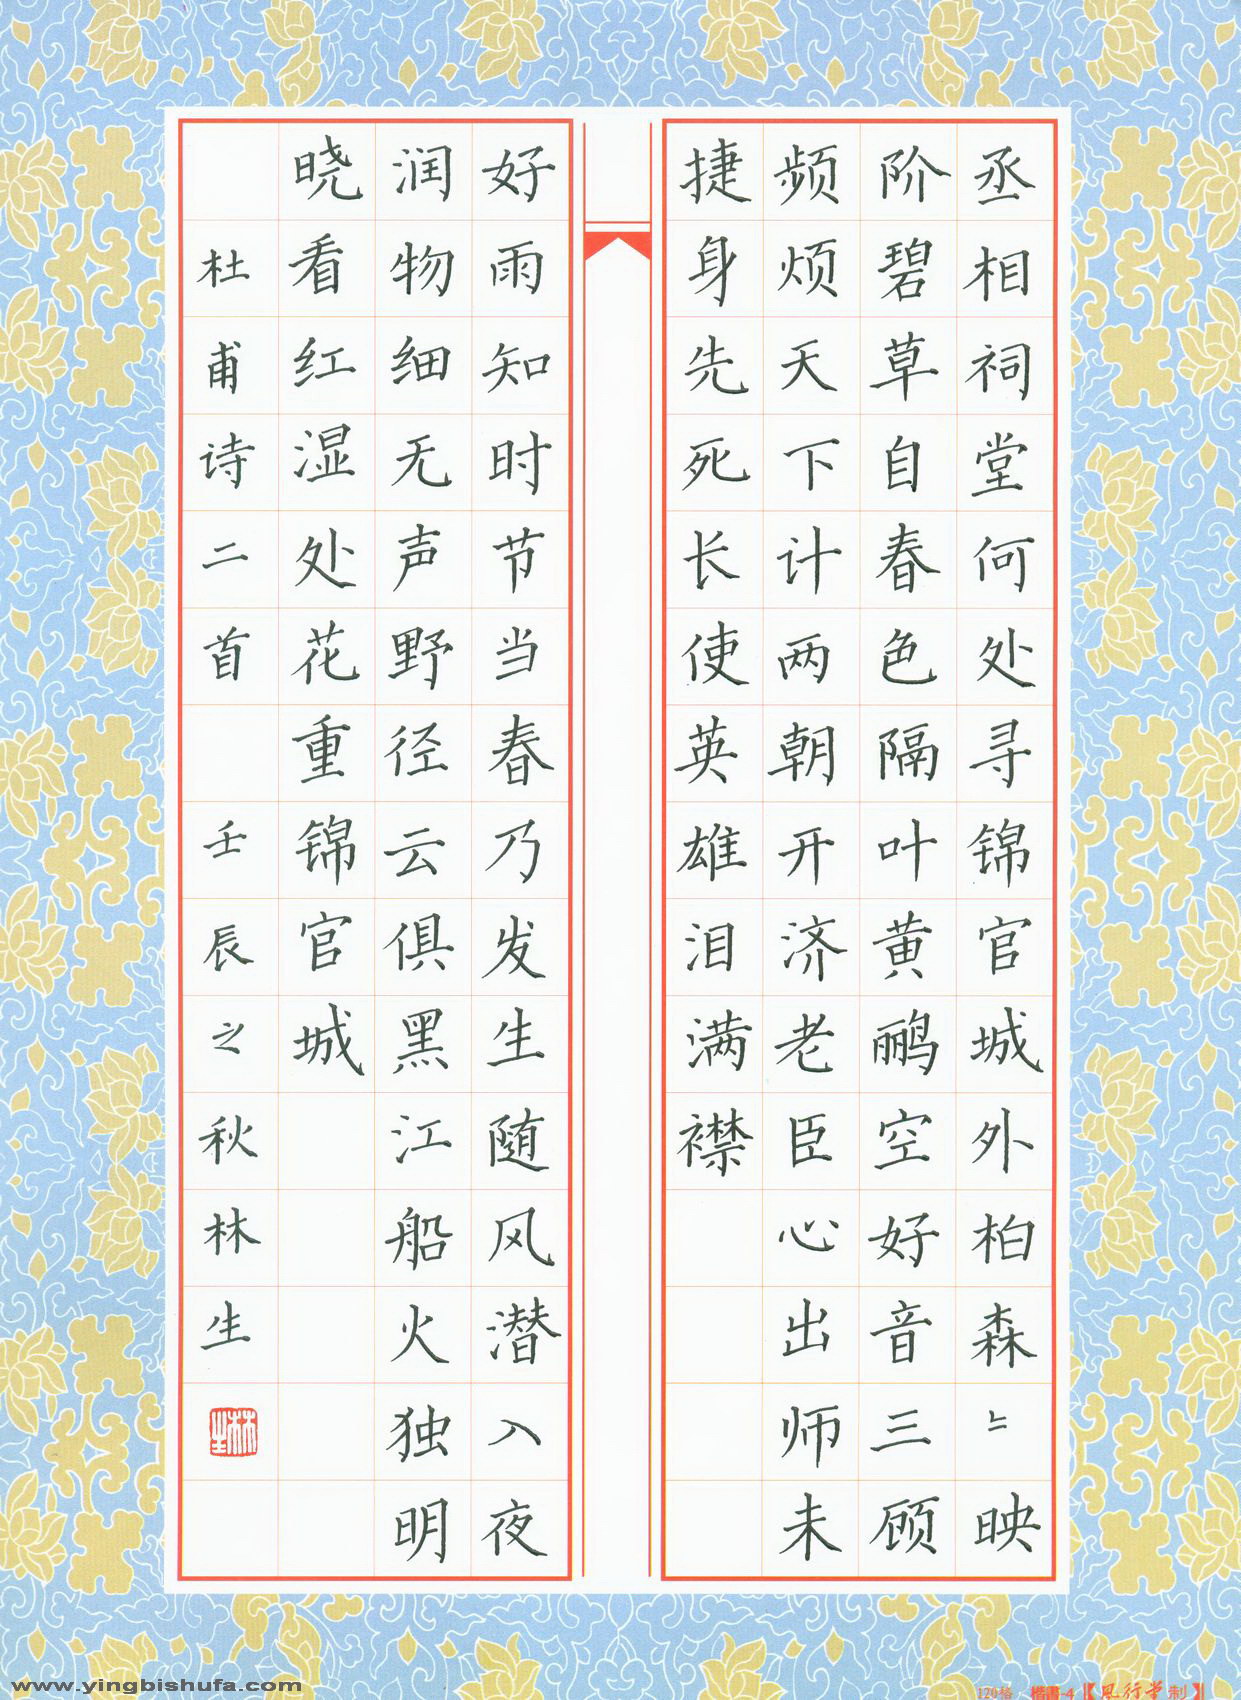 丞相祠堂何处寻锦官城外柏森〻映
阶碧草自春色隔叶黄鹂空好音三顾
频烦天下计两朝开济老臣心出师未
捷身先死长使英雄泪满襟
好雨知时节当春乃发生随风潜入夜
润物细无声野径云俱黑江船火独明
晓看红湿处花重锦官城
杜甫诗二首 壬辰之秋林生
林生
www.yingbishufa.com
120格 楷書-4